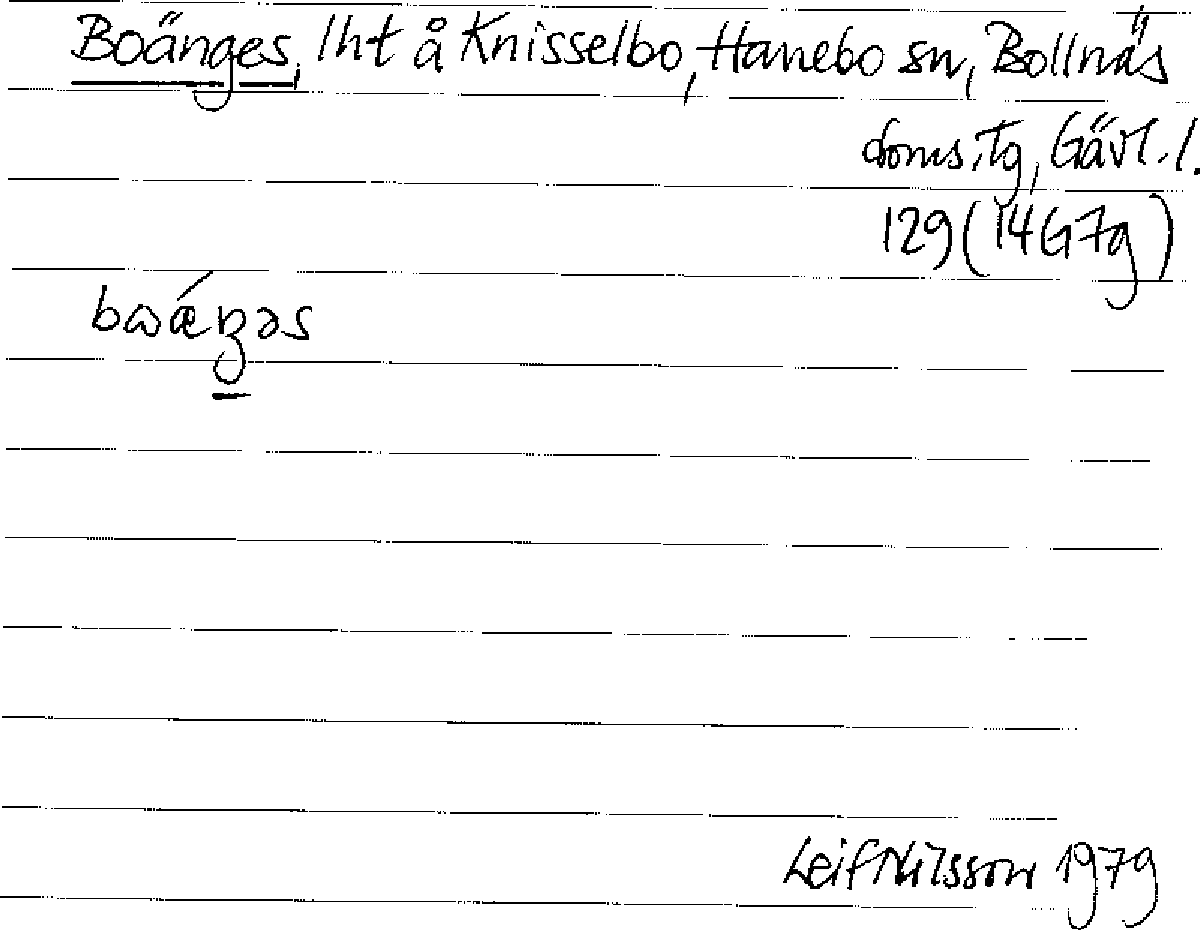 Boänges, lht å Knisselbo, Hanebo sn, Bollnäs
doms. Tg, Gävl. l.
129 (14G7g)
Leif Nilsson 1979